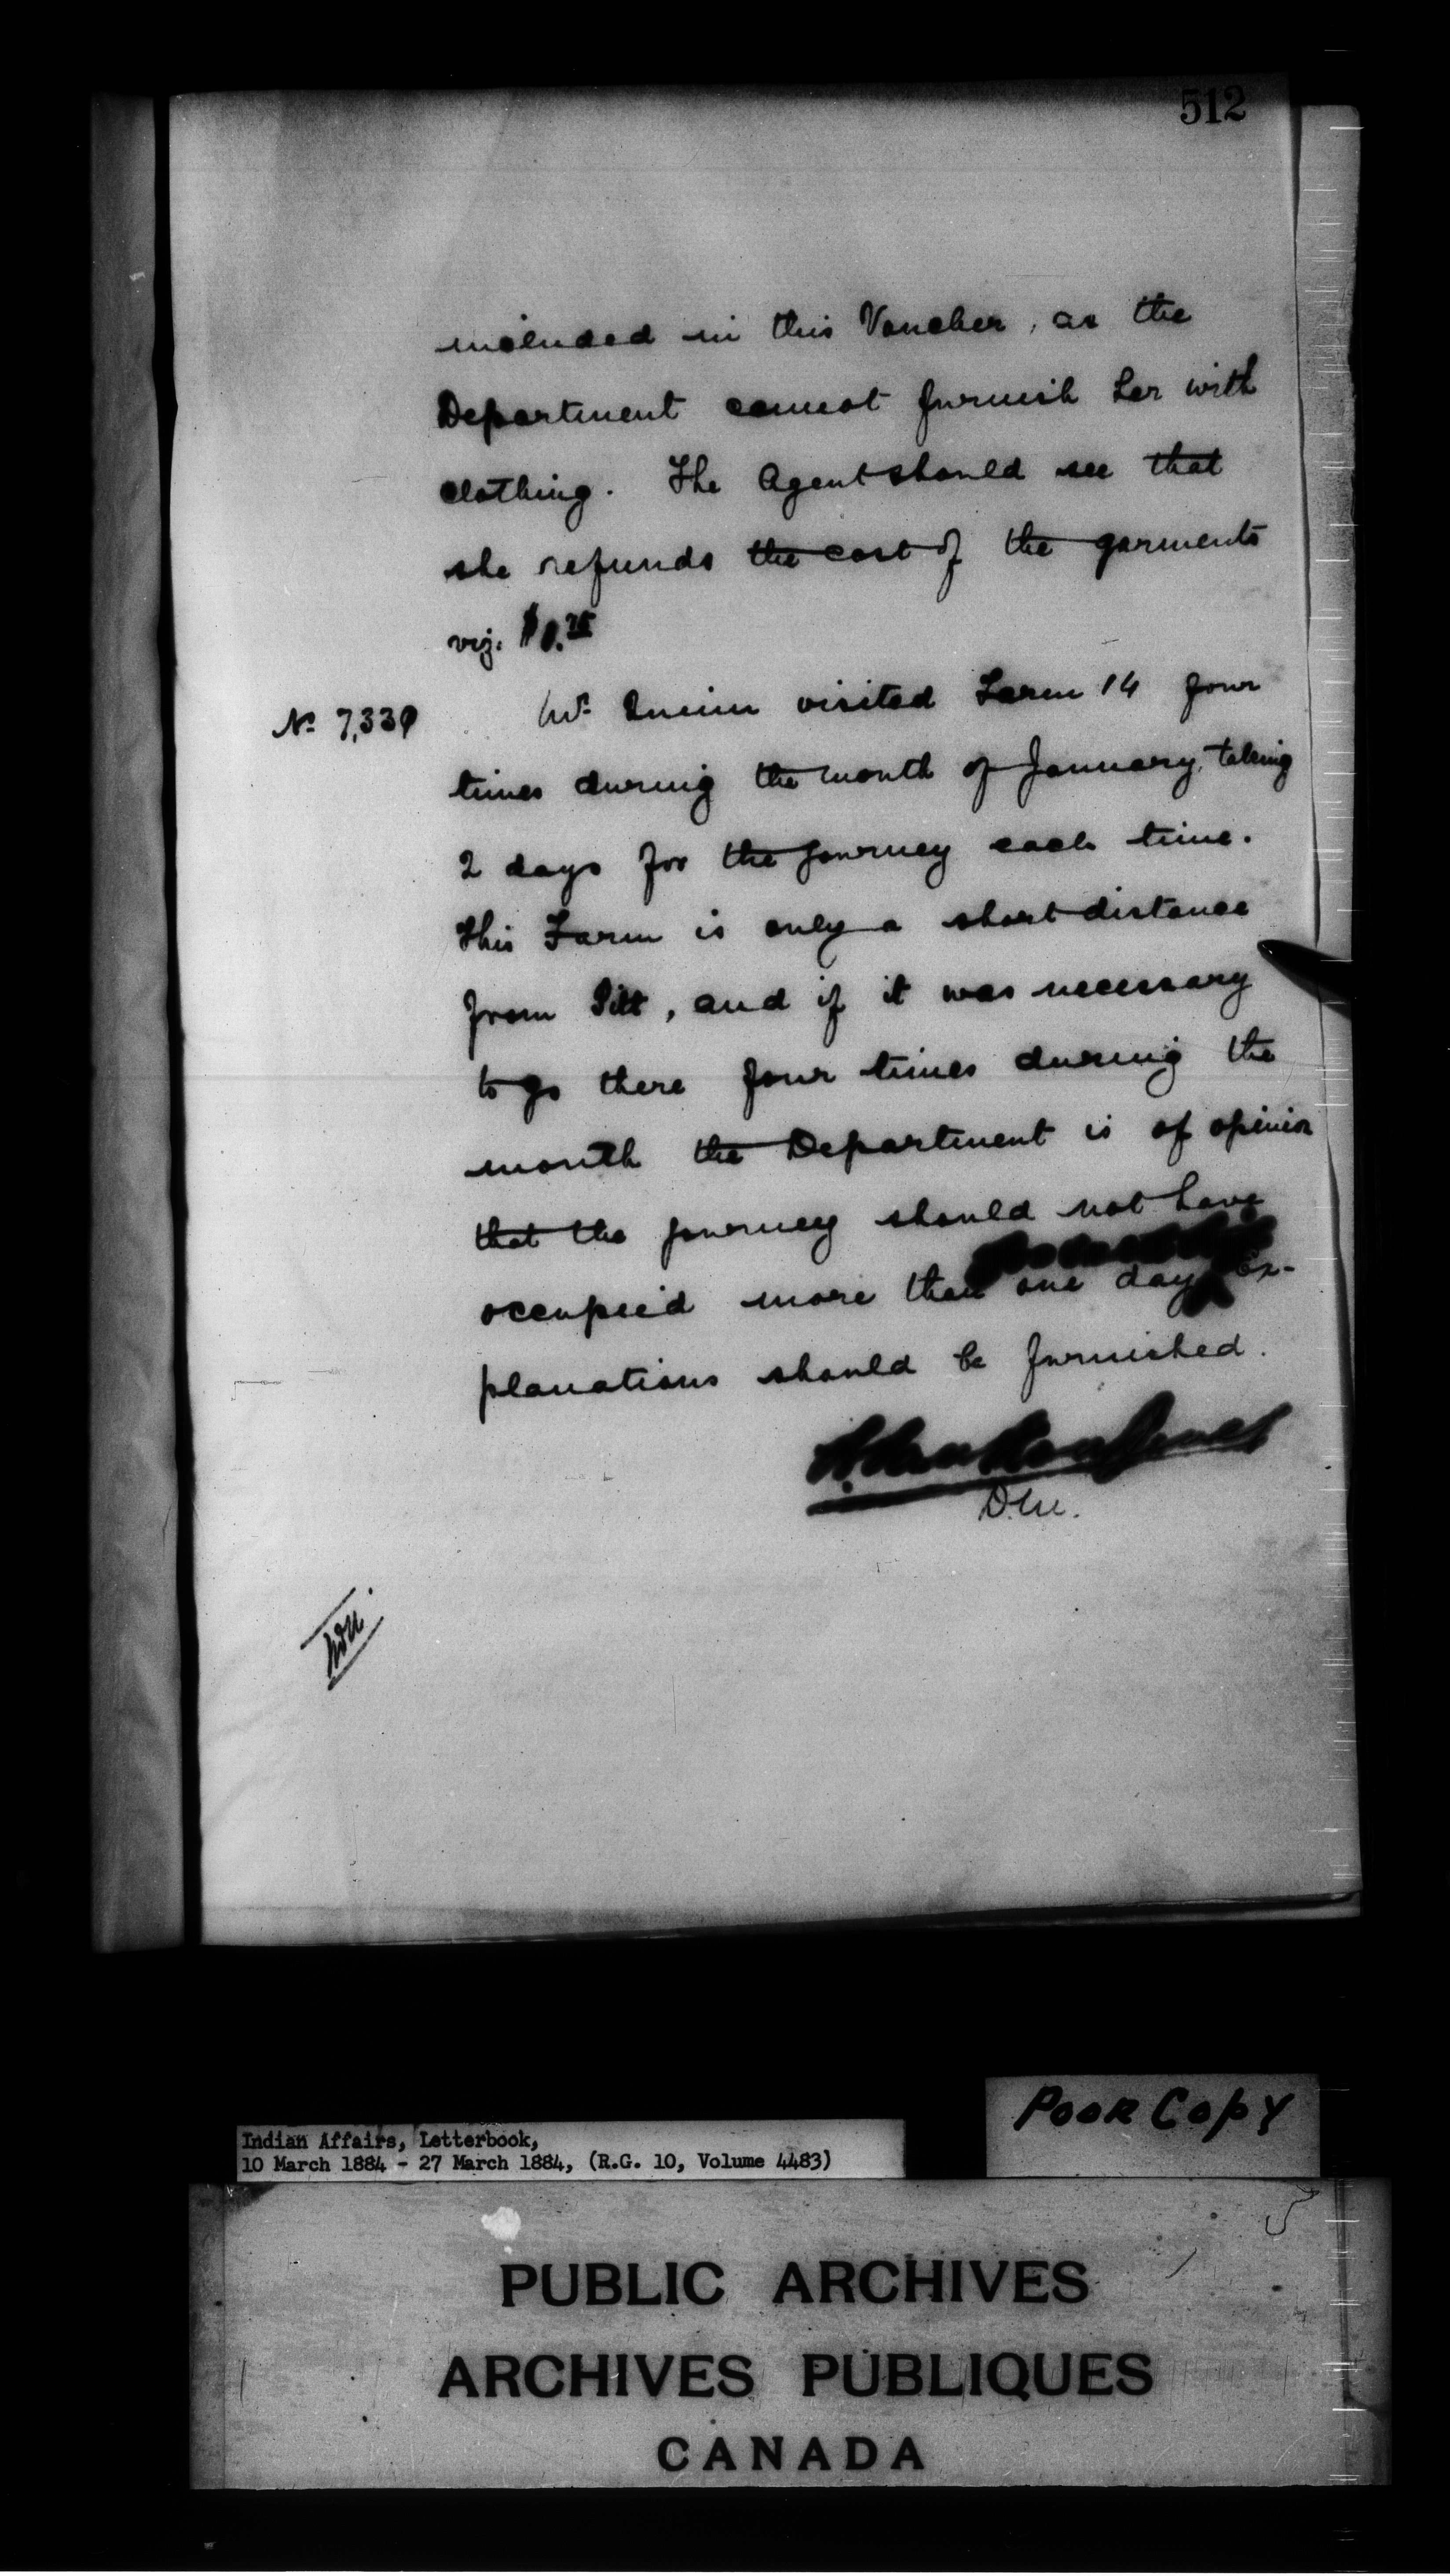 512
included in this Voucher, as the
Department cannot furnish her with
clothing. The Agent should see that
she refunds the cost of the garments
viz. $0.75
No 7,339 Mr. Quinn visited Farm 14 four
times during the month of January, taking
2 days for the journey each time.
This Farm is only a short distance
from Pitt, and if it was necessary
to go there four times during the
month the Department is of opinion
that the journey should not have
occupied more than one day Ex-
planations should be furnished.
D.M.
Indian Affairs, Letterbook,
10 March 1884 - 27 March 1884, (R.G. 10, Volume 4483)
Poor Copy
PUBLIC ARCHIVES
ARCHIVES PUBLIQUES
CANADA